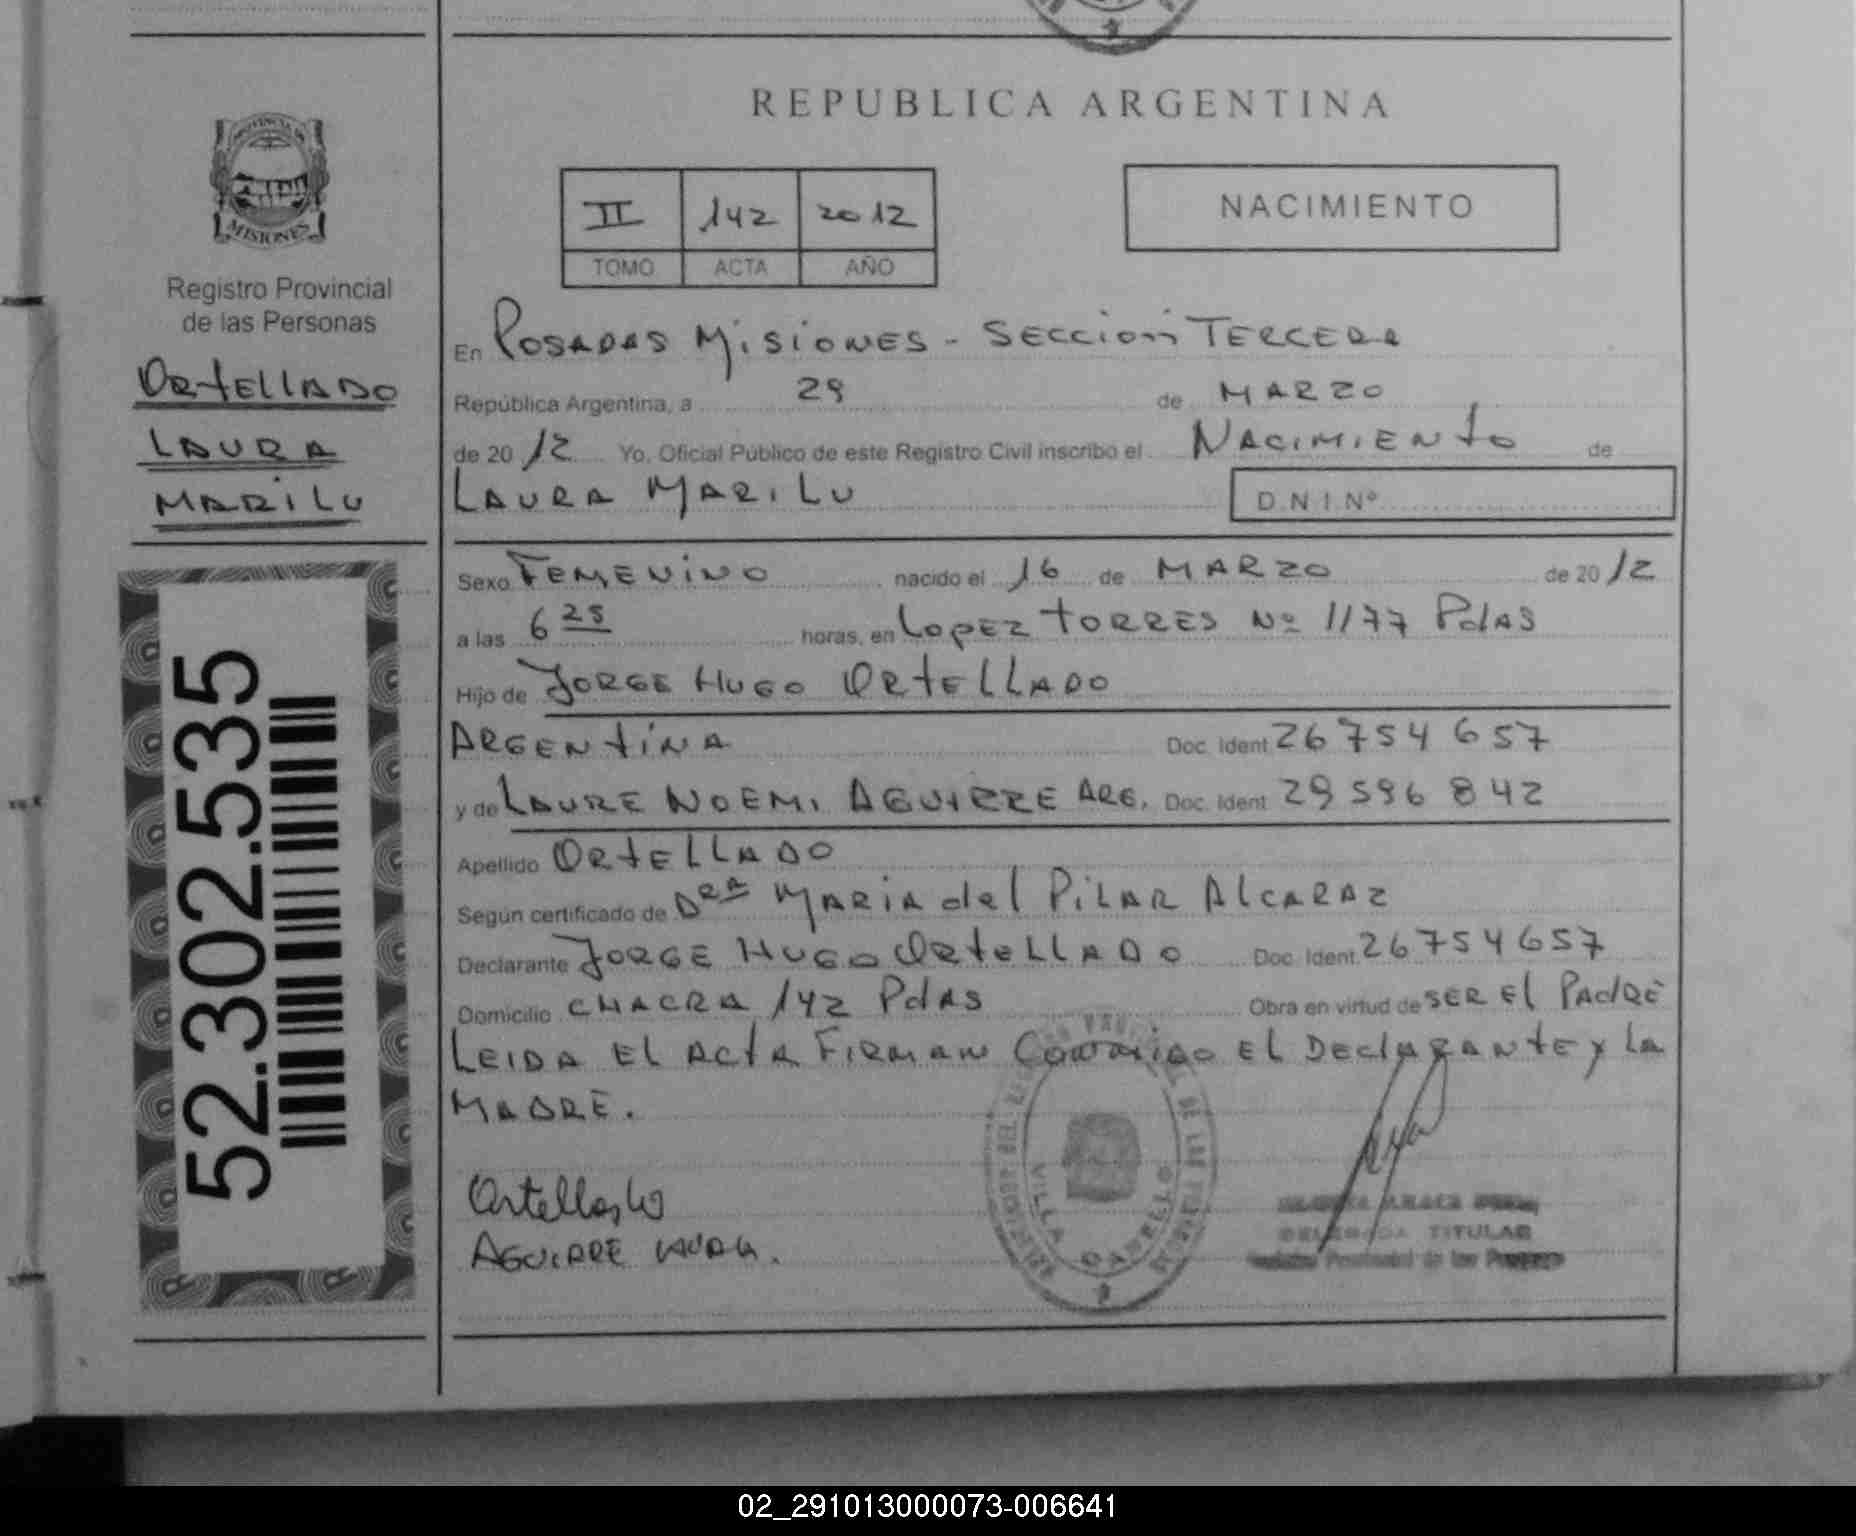 REPUBLICA ARGENTINA
PROVINCIA DE
MISIONES
Registro Provincial
de las Personas
ORTELLADO
LAURA
MARILU
52.302.535
II 142 2012
TOMO ACTA AÑO
NACIMIENTO
En POSADAS MISIONES - SECCION TERCERA
República Argentina, a 29 de MARZO
de 20 12 Yo, Oficial Público de este Registro Civil inscribo el NACIMIENTO de
LAURA MARILU D.N.I.Nº
Sexo FEMENINO nacido el 16 de MARZO de 20 12
a las 6 25 horas, en LOPEZ TORRES Nº 1177 PdAS
Hijo de JORGE HUGO ORTELLADO
ARGENTINA Doc. Ident 26754657
y de LAURE NOEMI AGUIRRE ARG. Doc. Ident 29596842
Apellido ORTELLADO
Según certificado de DRA MARIA del PILAR ALCARAZ
Declarante JORGE HUGO ORTELLADO Doc. Ident. 26754657
Domicilio CHACRA 142 PdAS Obra en virtud de SER El PADRE
LEIDA EL ACTA FIRMAN CONMIGO EL DECLARANTE y LA
MADRE.
Ortellado
AGUIRRE LAURA.
VILLA CABELLO
DELEGADA TITULAR
Registro Provincial de las Personas
02_291013000073-006641